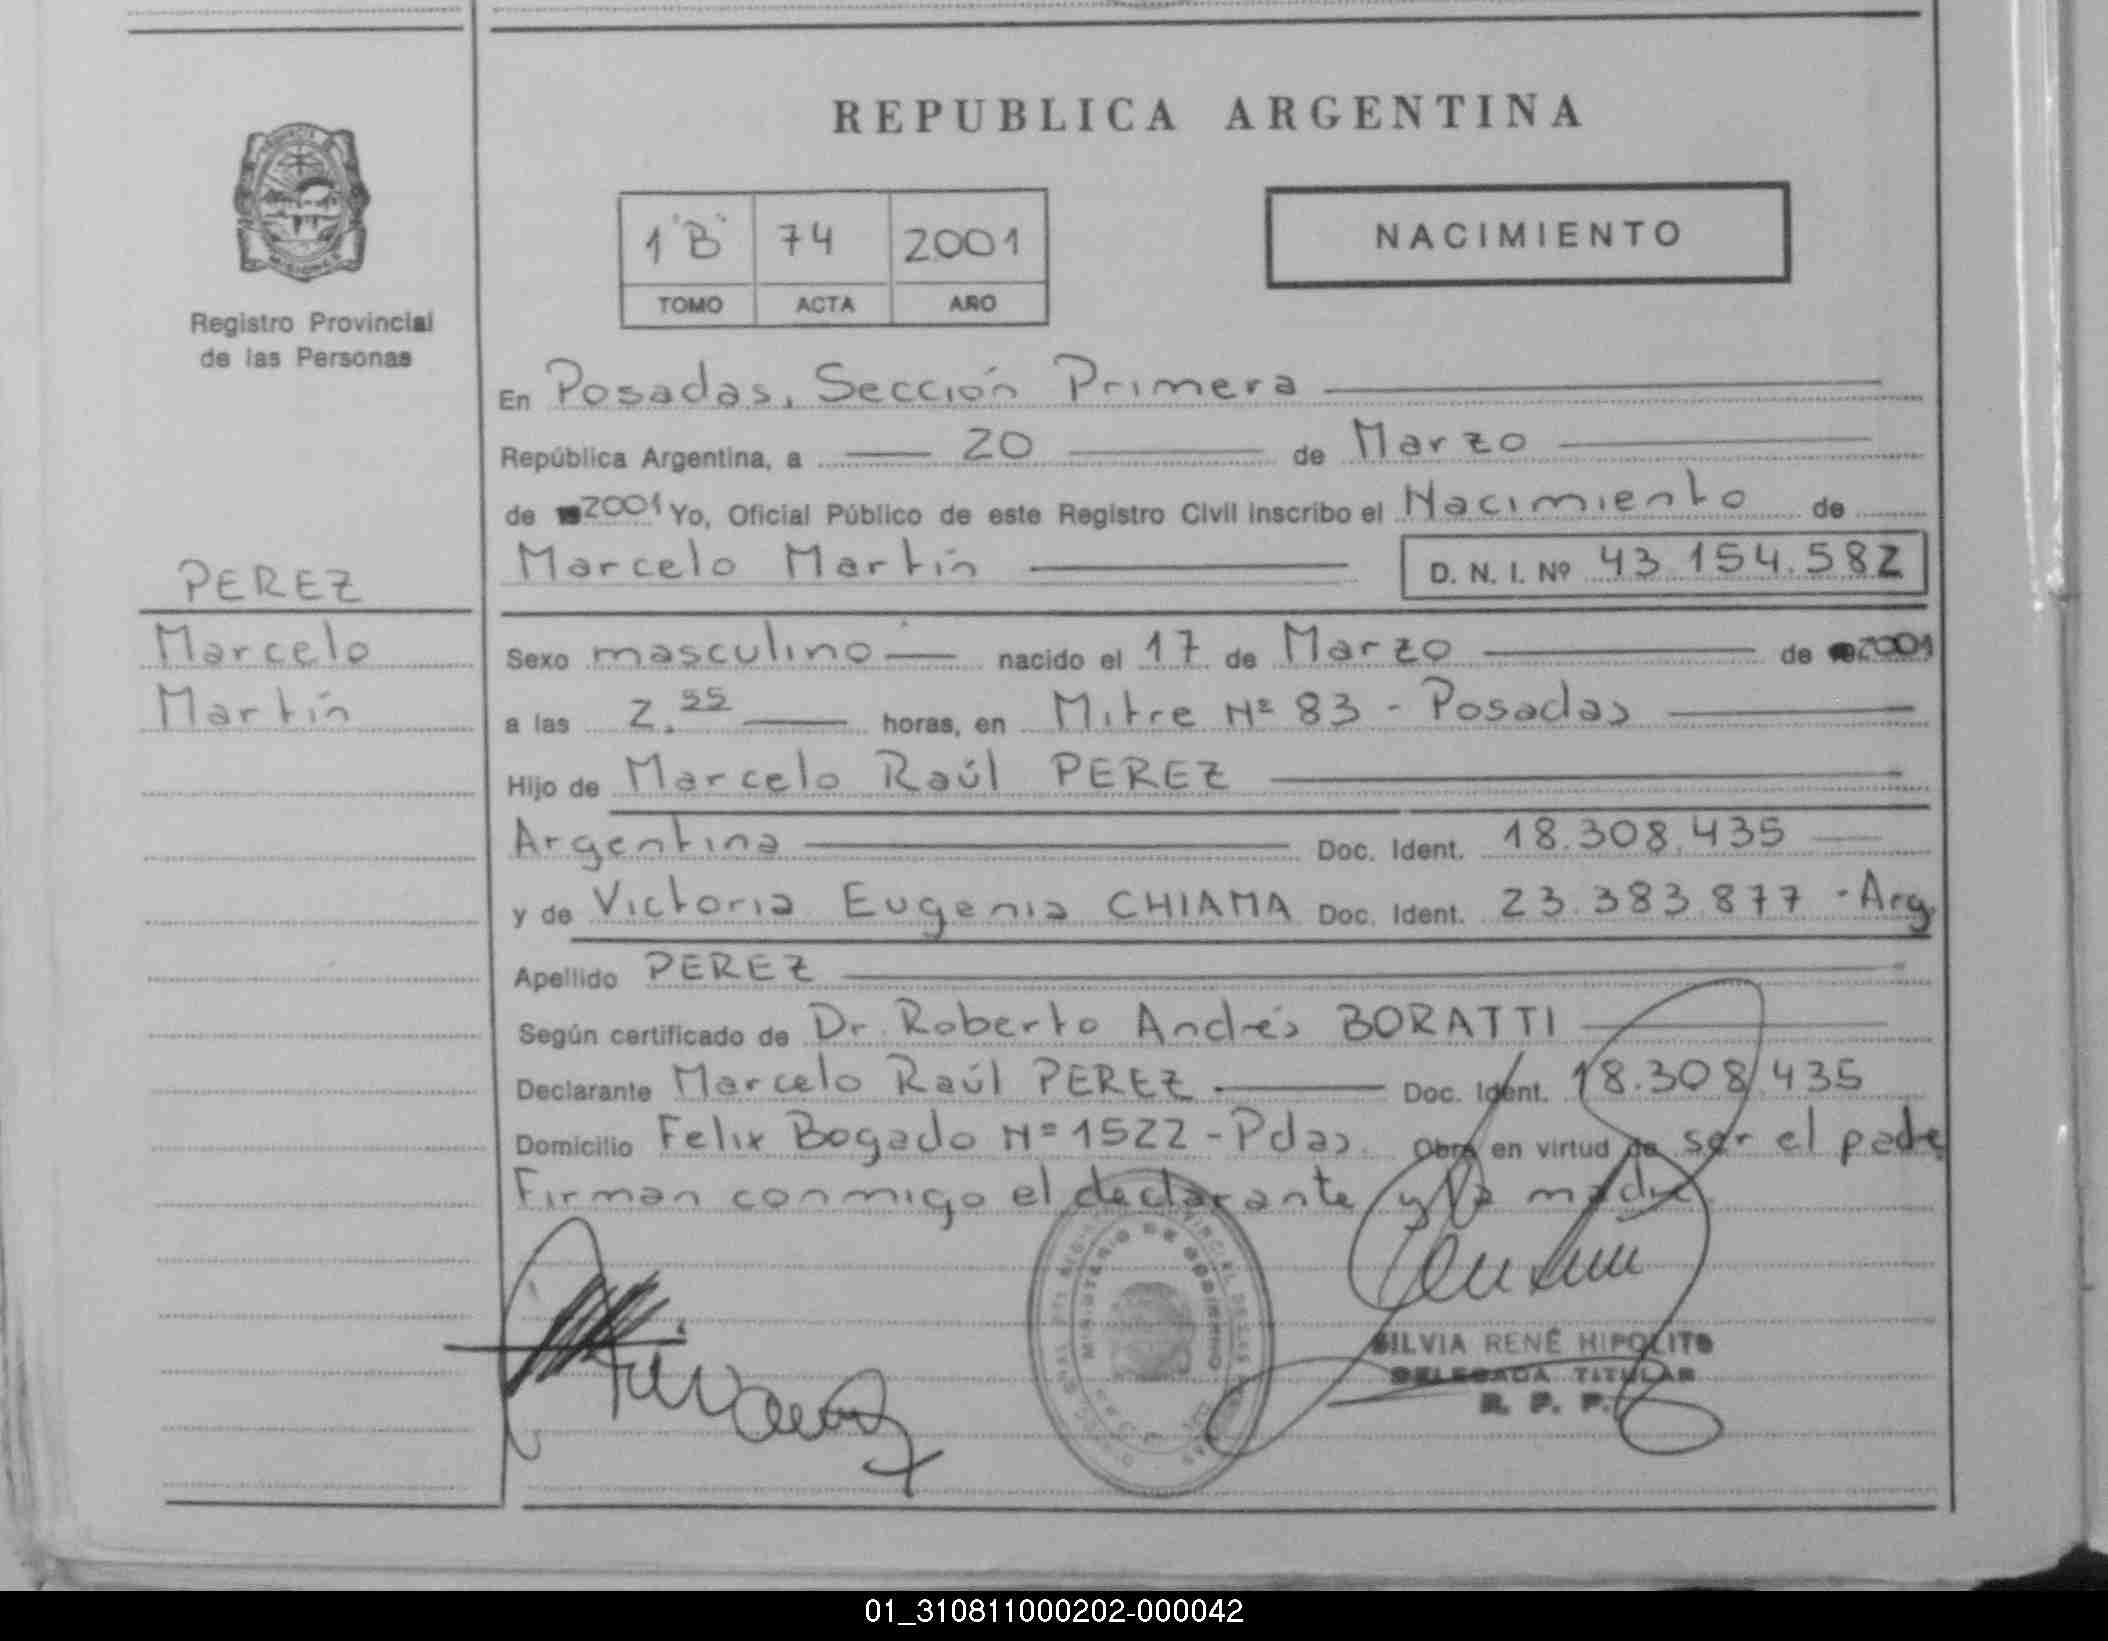 REPUBLICA ARGENTINA
MISIONES
Registro Provincial
de las Personas
1 "B" 74 2001
TOMO ACTA AÑO
NACIMIENTO
En Posadas, Sección Primera
República Argentina, a 20 de Marzo
de 2001 Yo, Oficial Público de este Registro Civil inscribo el Nacimiento de
Marcelo Martín D. N. I. Nº 43.154.582
PEREZ
Marcelo
Martín
Sexo masculino nacido el 17 de Marzo de 2001
a las 2.55 horas, en Mitre Nº 83 - Posadas
Hijo de Marcelo Raúl PEREZ
Argentina Doc. Ident. 18.308.435
y de Victoria Eugenia CHIAMA Doc. Ident. 23.383.877 - Arg.
Apellido PEREZ
Según certificado de Dr. Roberto Andrés BORATTI
Declarante Marcelo Raúl PEREZ Doc. Ident. 18.308.435
Domicilio Felix Bogado Nº 1522 - Pdas. Obra en virtud de ser el padre
Firman conmigo el declarante y la madre.
MINISTERIO DE GOBIERNO
SILVIA RENÉ HIPOLITO
DELEGADA TITULAR
R. P. P.
01_310811000202-000042